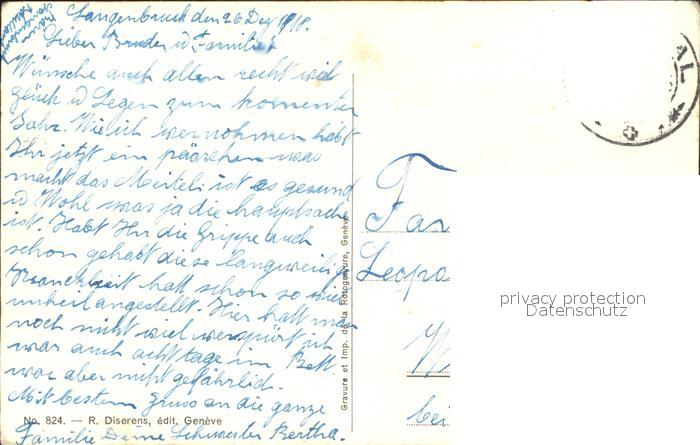 Langenbruck den 26 Dez 1918.
Lieber Bruder u Familie!
Wünsche auch allen recht viel
Glück u Segen zum komenten
Jahr. Wie ich wernohmen habt
Ihr jetzt ein päärchen was
macht das Meiteli ist es gesund
u Wohl was ja die hauptsache
ist. Habt Ihr die Grippe auch
schon gehabt diese langweilige
Krankheit hatt schon so viel
unheil angestellt. Hier hatt man
noch niht viel werspürt ich
war auch acht tage im Bett
war aber niht gefährlich.
Mit bestem Gruss an die ganze
Familie Deine Schwester Bertha.
No. 824. — R. Diserens, édit. Genève
Gravure et Imp. de la Rotogravure, Genève
AL
Fam
Leopo
W
bei
privacy protection
Datenschutz